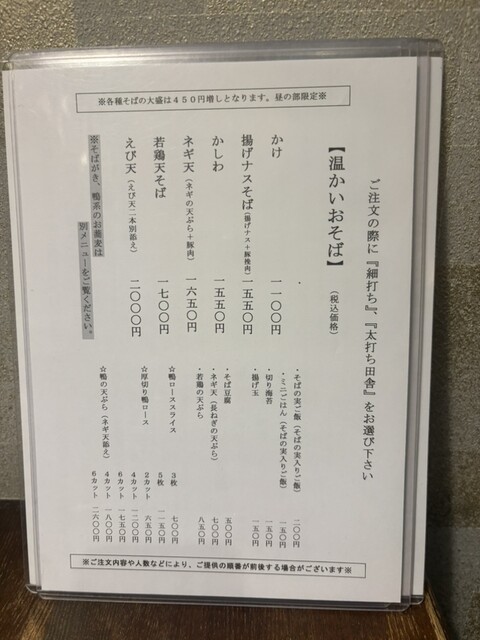 ※各種そばの大盛は４５０円増しとなります。昼の部限定※
ご注文の際に『細打ち』、『太打ち田舎』をお選び下さい
【温かいおそば】 （税込価格）
かけ 一一〇〇円
揚げナスそば（揚げナス＋豚後肉） 一五五〇円
かしわ 一五五〇円
ネギ天（ネギの天ぷら＋豚肉） 一六五〇円
若鶏天そば 一七〇〇円
えび天（えび天二本別添え） 二〇〇〇円
※そばがき、鴨系のお蕎麦は
別メニューをご覧ください。
・そばの実ご飯（そばの実入りご飯） 二〇〇円
・ミニごはん（そばの実入りご飯） 一五〇円
・切り海苔 一五〇円
・揚げ玉 一五〇円
・そば豆腐 五〇〇円
・ネギ天（長ねぎの天ぷら） 七〇〇円
・若鶏の天ぷら 八五〇円
☆鴨ローススライス 3枚 七〇〇円
5枚 一一五〇円
☆厚切り鴨ロース 2カット 六五〇円
4カット 一二〇〇円
6カット 一七五〇円
☆鴨の天ぷら（ネギ天添え） 4カット 一八〇〇円
6カット 二六〇〇円
※ご注文内容や人数などにより、ご提供の順番が前後する場合がございます※